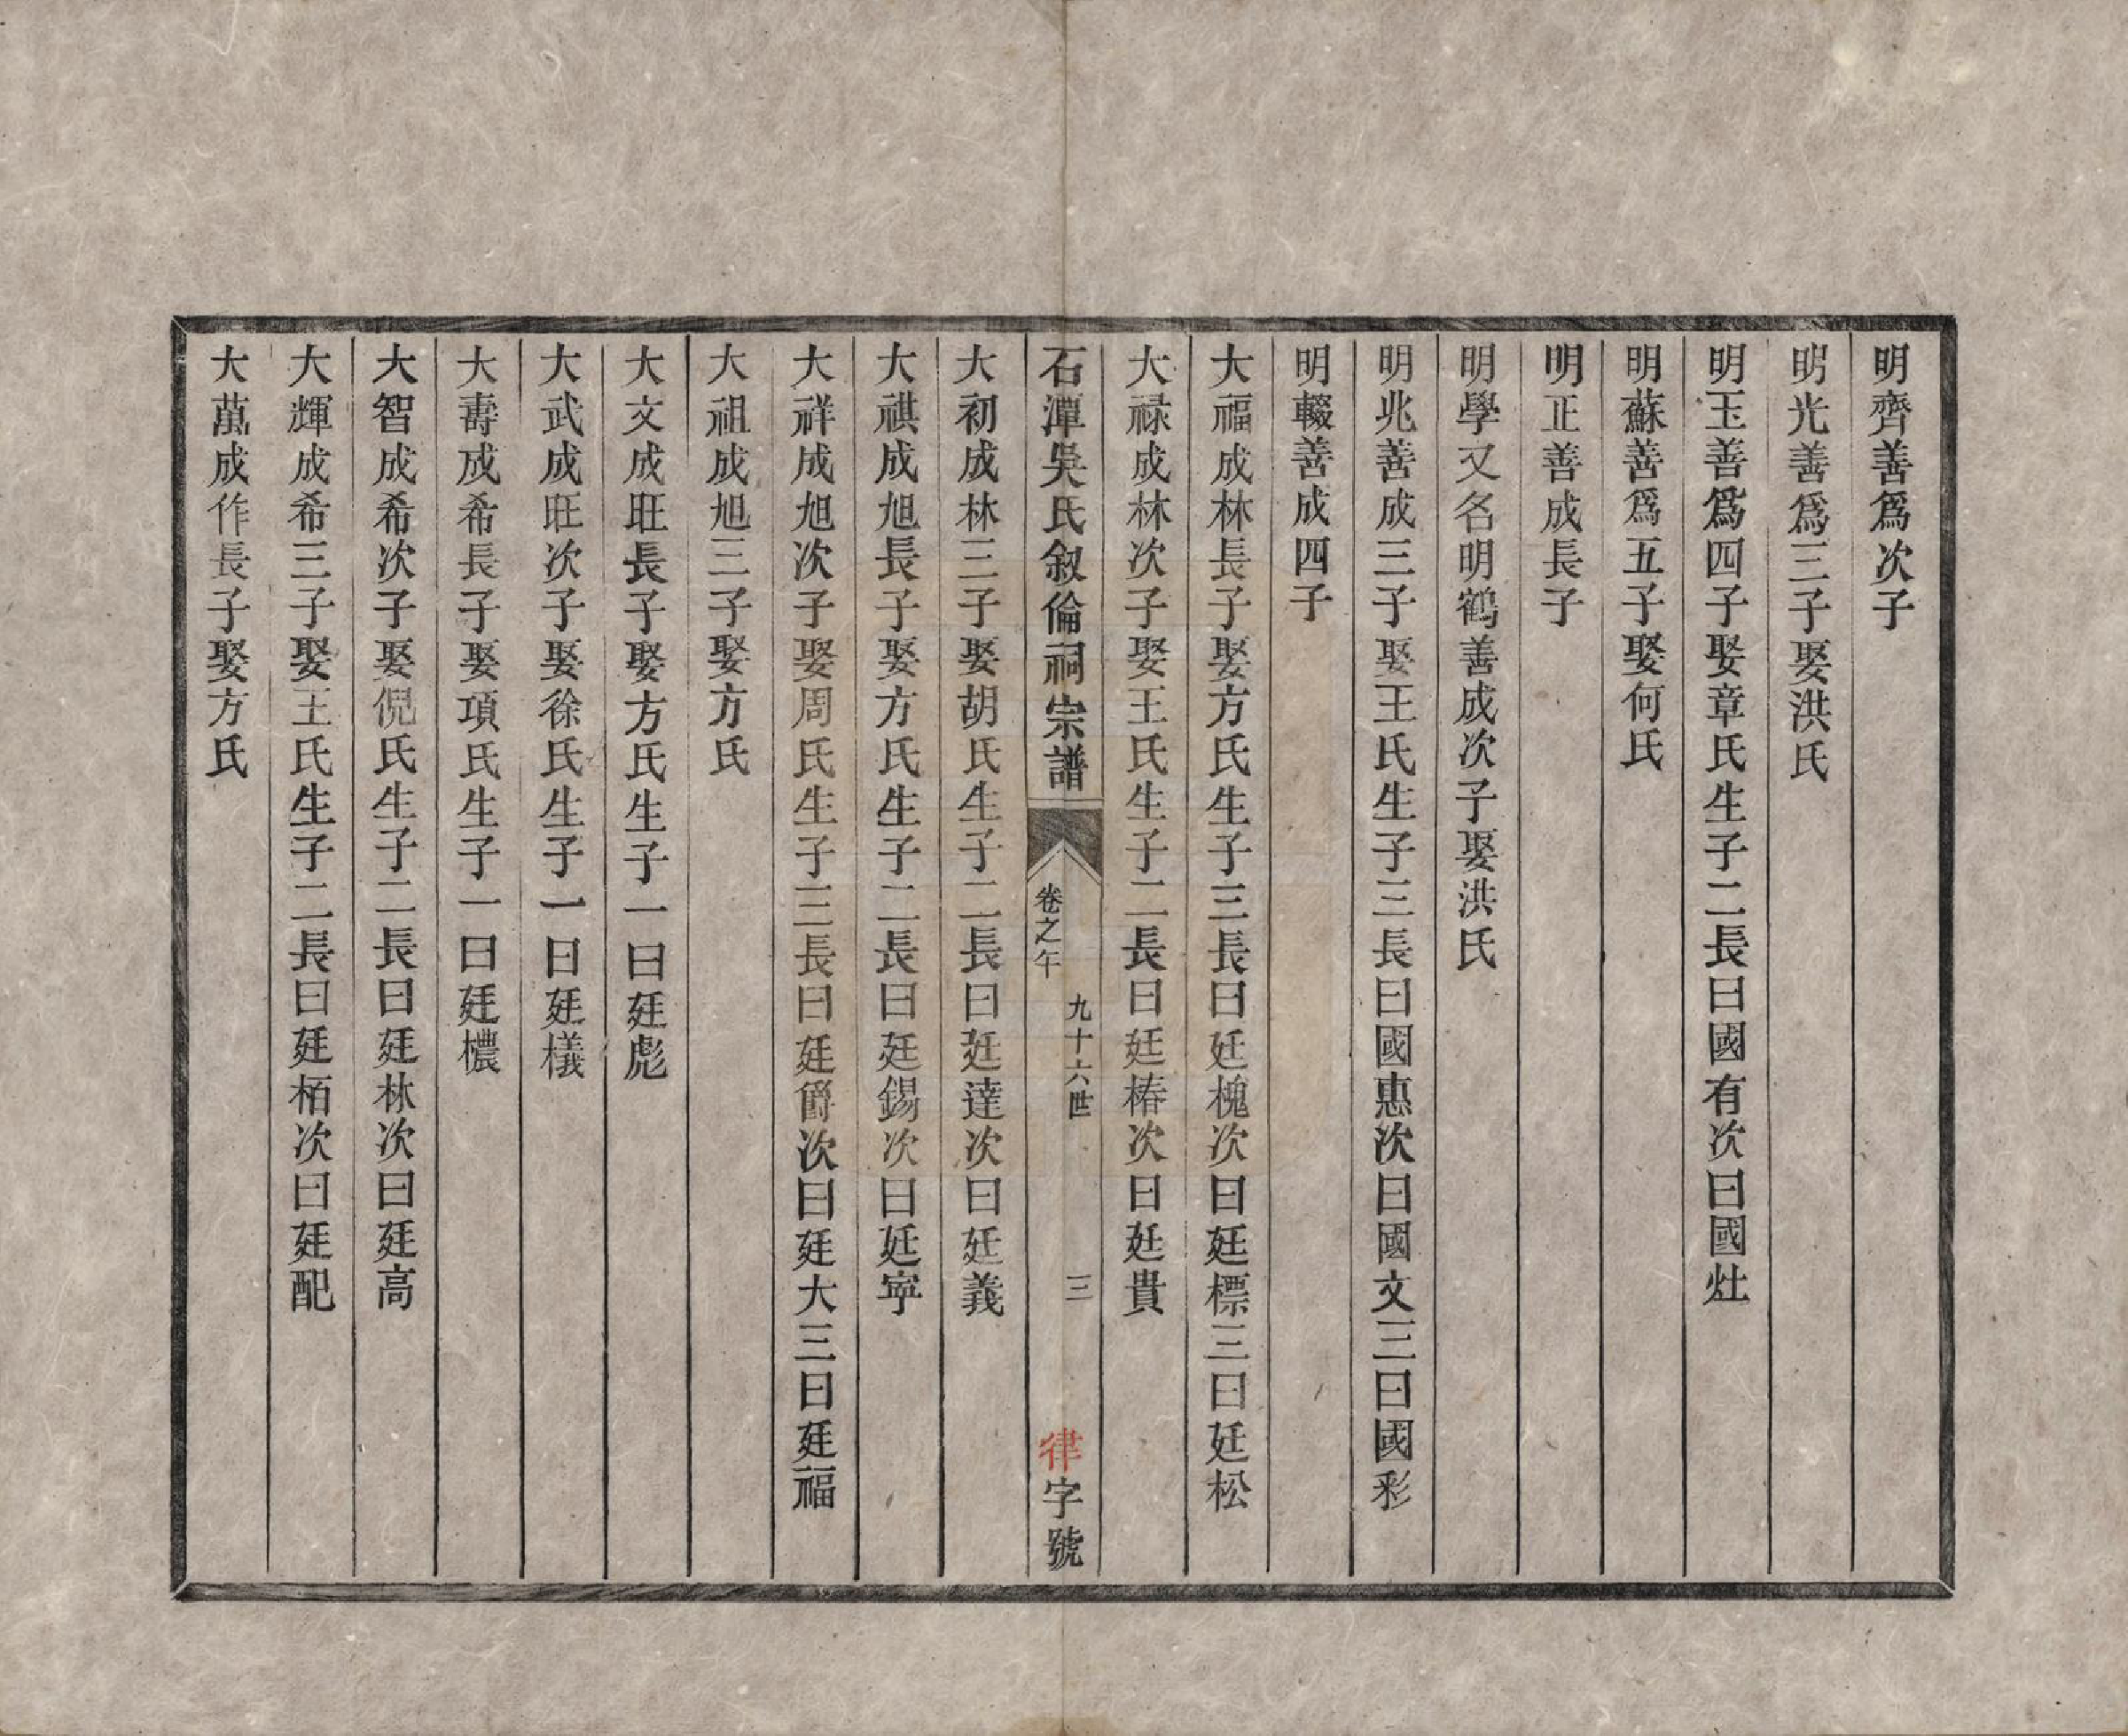 明齊善爲次子
明光善爲三子娶洪氏
明玉善爲四子娶章氏生子二長曰國有次曰國灶
明蘇善爲五子娶何氏
明正善成長子
明學又名明鶴善成次子娶洪氏
明兆善成三子娶王氏生子三長曰國惠次曰國文三曰國彩
明輟善成四子
大福成林長子娶方氏生子三長曰廷槐次曰廷標三曰廷松
大禄成林次子娶王氏生子二長曰廷椿次曰廷貴
石潭吳氏叙倫祠宗譜
卷之午
九十六世
三
律字號
大初成林三子娶胡氏生子二長曰廷達次曰廷義
大祺成旭長子娶方氏生子二長曰廷錫次曰廷寧
大祥成旭次子娶周氏生子三長曰廷爵次曰廷大三曰廷福
大祖成旭三子娶方氏
大文成旺長子娶方氏生子一曰廷彪
大武成旺次子娶徐氏生子一曰廷檥
大壽成希長子娶項氏生子一曰廷檂
大智成希次子娶倪氏生子二長曰廷林次曰廷高
大輝成希三子娶王氏生子二長曰廷栢次曰廷配
大萬成作長子娶方氏